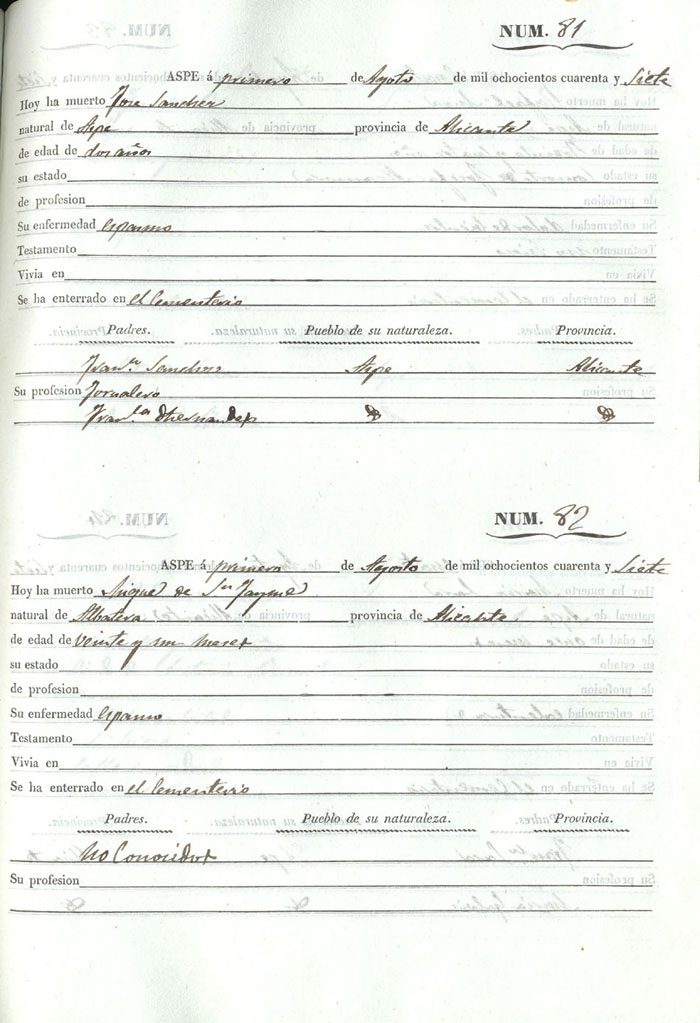 NUM. 81
ASPE á primero de Agoto de mil ochocientos cuarenta y Siete
Hoy ha muerto Jose Sanchez
natural de Aspe provincia de Alicante
de edad de dos años
su estado
de profesion
Su enfermedad espasmo
Testamento
Vivia en
Se ha enterrado en el Cementerio
Padres. Pueblo de su naturaleza. Provincia.
Fran.co Sanchez Aspe Alicante
Su profesion Jornalero
Fran.ca Hernandez
NUM. 82
ASPE á primero de Agosto de mil ochocientos cuarenta y Siete
Hoy ha muerto Miguel de Sn Jayme
natural de Albatera provincia de Alicante
de edad de veinte y un meses
su estado
de profesion
Su enfermedad espasmo
Testamento
Vivia en
Se ha enterrado en el Cementerio
Padres. Pueblo de su naturaleza. Provincia.
No Conocidos
Su profesion